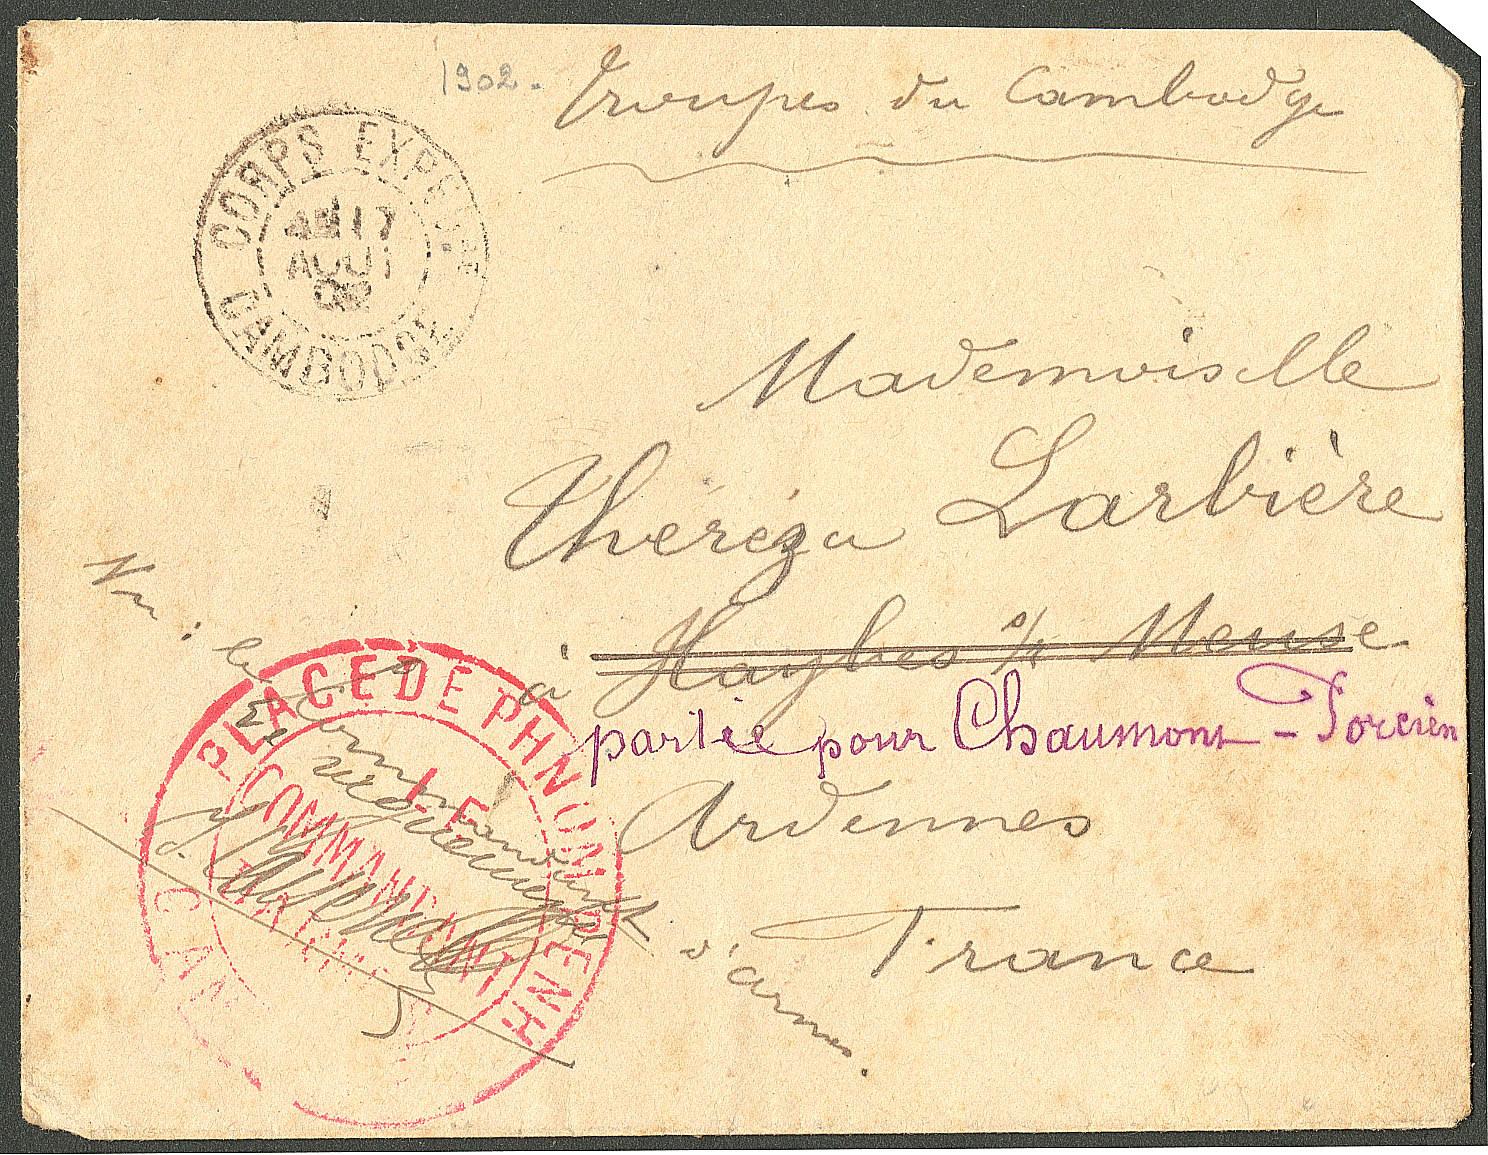 1902.
Troupes du Cambodge
CORPS EXPED.
17
AOUT
02
CAMBODGE
Mademoiselle
Théréza Larbière
à Haybes s/ Meuse
partie pour Chaumont-Porcien
Ardennes
France
Vu : le Commandant
d'armes.
PLACE DE PHNOM PENH
LE
COMMANDANT